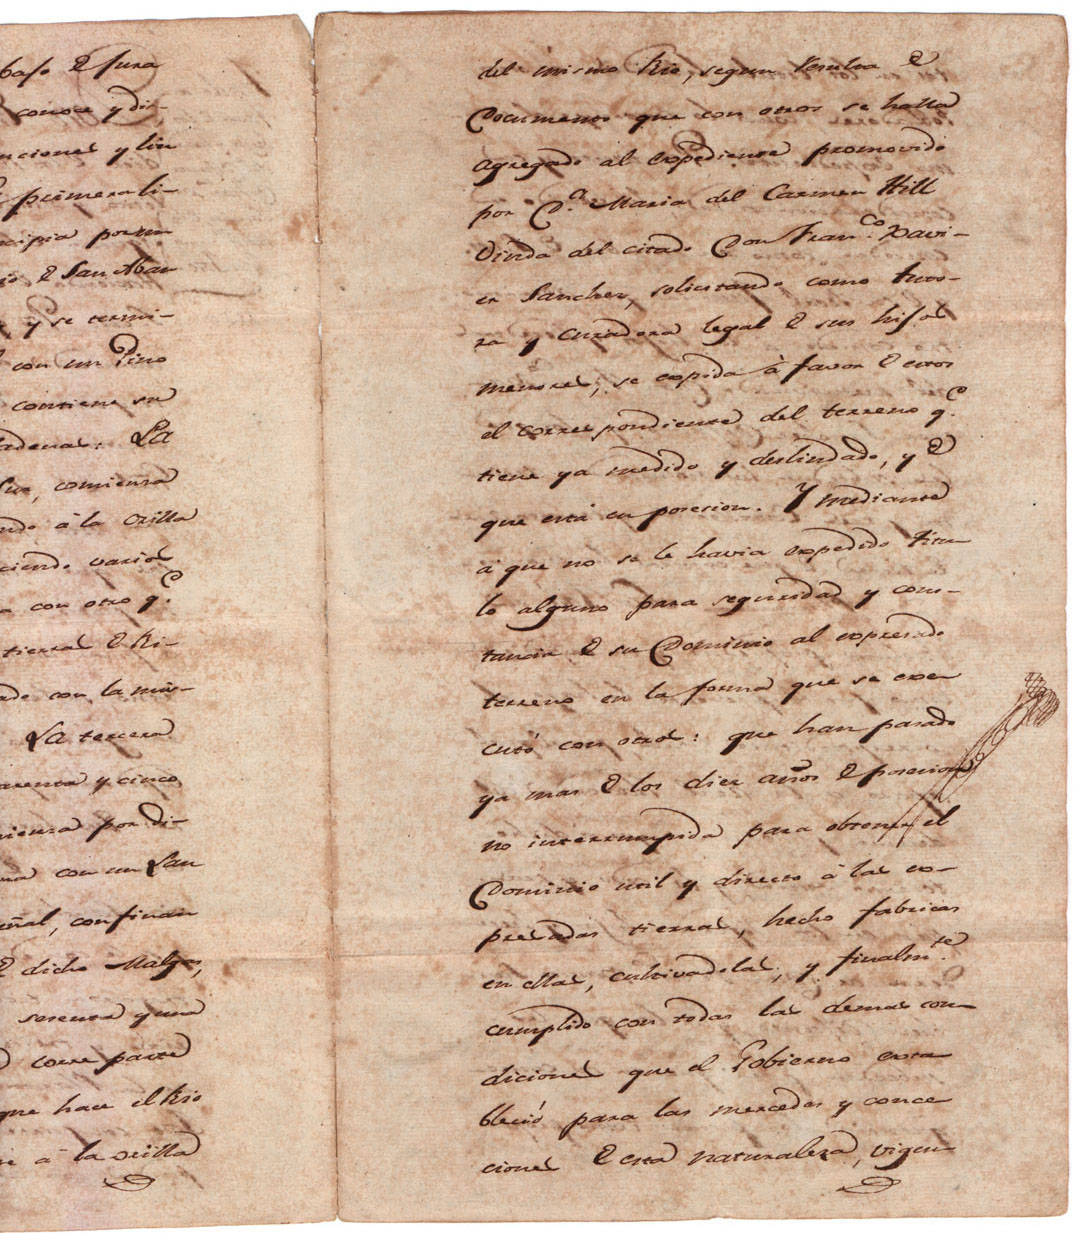 bajo de Jura
conoce y dis-
nciones y lin
primera li-
ncipia por un
rio de San Aban
y se termi-
con un Pino
contiene su
adenas: La
Sur, comienza
ndo à la orilla
ciendo varios
a con otro q.e
tierras de Ri-
ado con la mis-
La tercera
arenta y cinco
mienza por di-
na con un San
eñal, confinan
de dicho Malges,
sesenta y una
corre parte
que hace el Rio
re à la orilla
del mismo Rio, segun resulta de
Documentos que con otros se halla
agregado al Expediente promovido
por D.a Maria del Carmen Hill
Viuda del citado Don Fran.co Xavi-
er Sanchez, solicitando como tuto-
ra y curadora legal de sus hijos
menores, se expida à favor de estos
el correspondiente del terreno q.e
tiene ya medido y deslindado, y de
que està en posesion. Y mediante
à que no se le havia expedido titu-
lo alguno para seguridad y cons-
tancia de su Dominio al expresado
terreno en la forma que se exe-
cutò con otros: que han pasado
ya mas de los diez años de posesion
no interrumpida para obtener el
Dominio util y directo à las ex-
presadas tierras, hecho fabricas
en ellas, cultivadolas, y finalm.te
cumplido con todas las demas con-
diciones que el Gobierno esta
bleciò para las mercedes y conce
ciones de esta naturaleza, vigen-